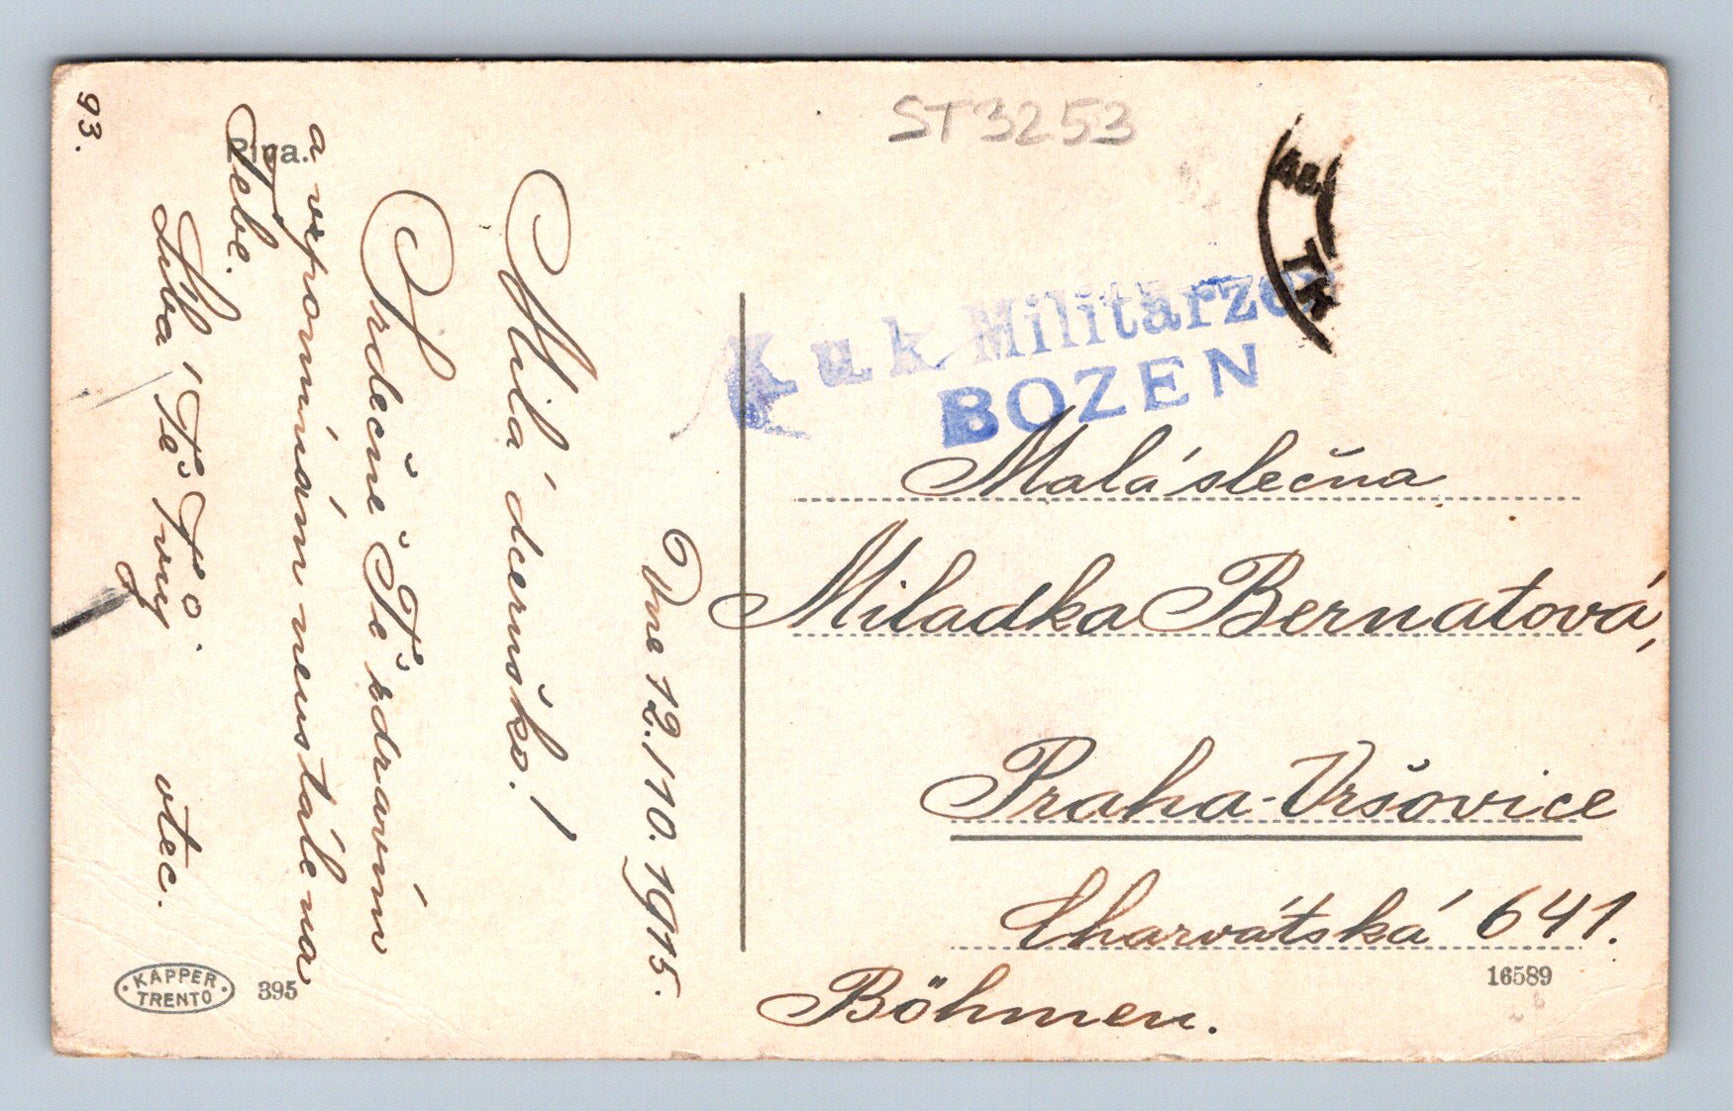 93.
Dne 12./10. 1915.
Milá dceruško!
Srdečně Tě zdravím
a vzpomínám neustále na
Tebe.
Líbá Tě Tvůj
otec.
Riva.
KAPPER
TRENTO
395
ST3253
K u k Militärzen
BOZEN
Malá slečna
Miladka Bernatová,
Praha-Vršovice
Charvátská 641.
Böhmen.
16589